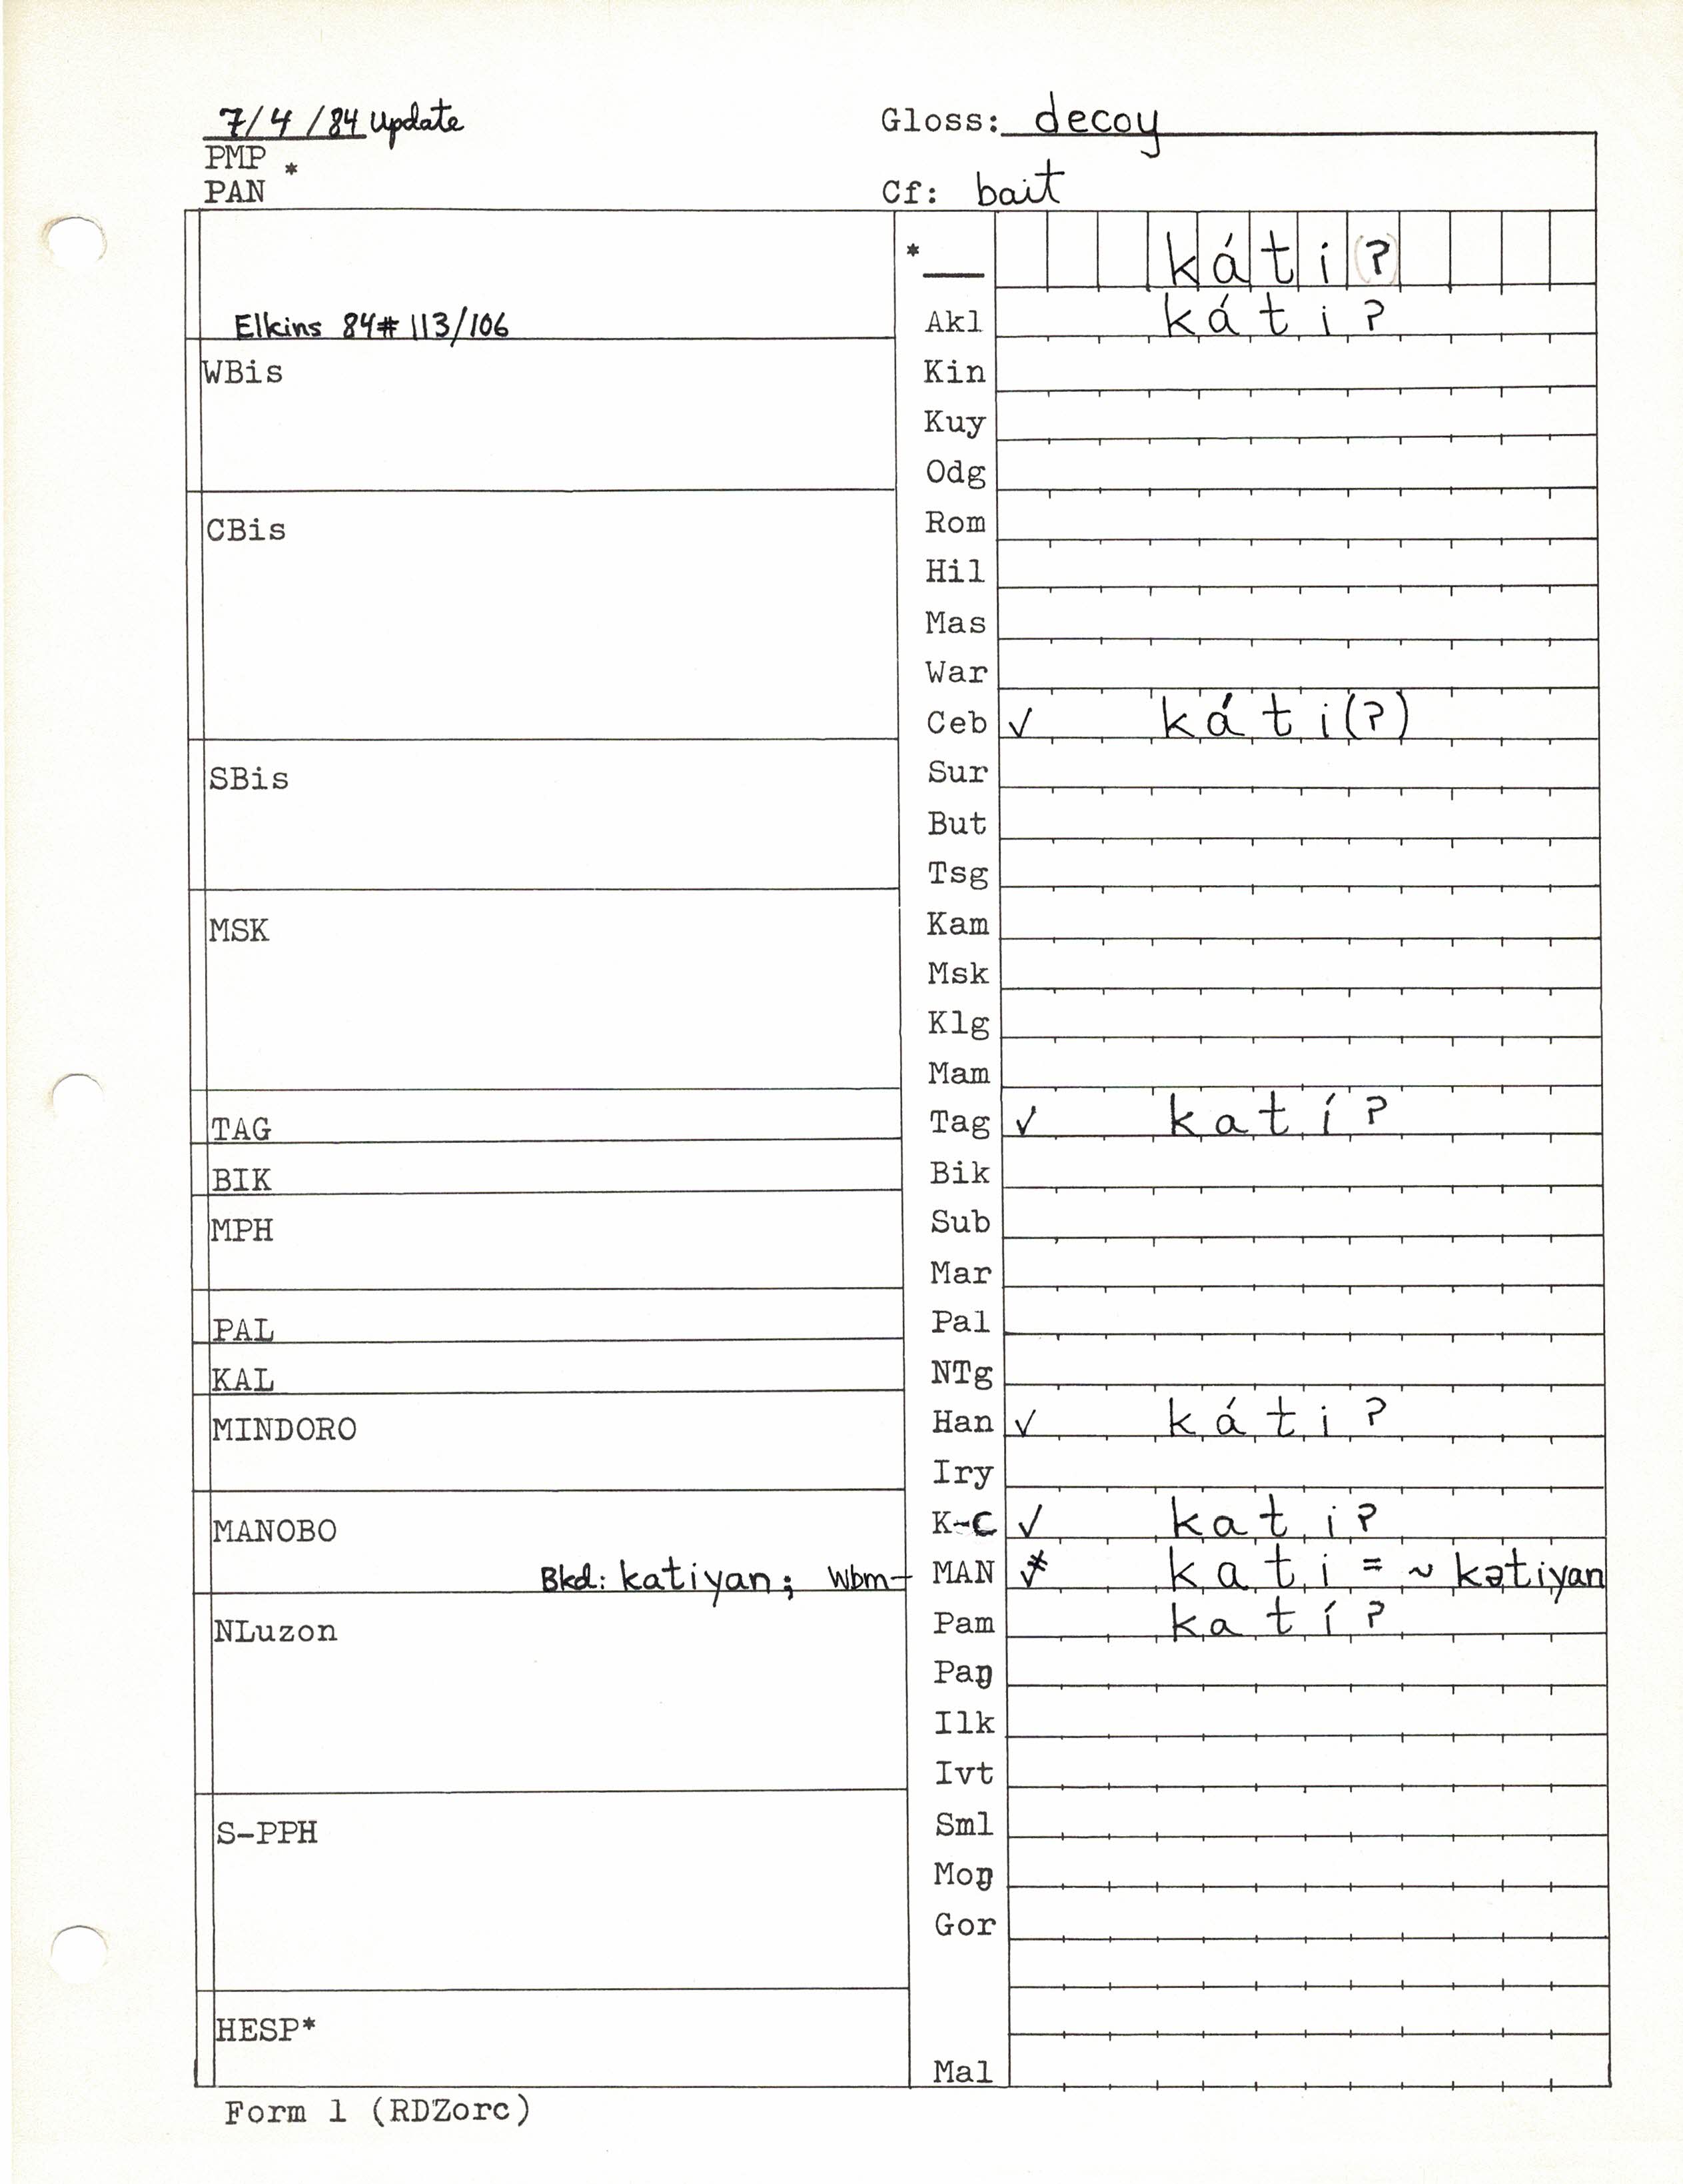 7/4/84 update Gloss: decoy
PMP *
PAN Cf: bait
* káti(ʔ)
Elkins 84# 113/106 Akl kátiʔ
WBis Kin
Kuy
Odg
CBis Rom
Hil
Mas
War
Ceb ✓ káti(ʔ)
SBis Sur
But
Tsg
MSK Kam
Msk
Klg
Mam
TAG Tag ✓ katíʔ
BIK Bik
MPH Sub
Mar
PAL Pal
KAL NTg
MINDORO Han ✓ kátiʔ
Iry
MANOBO K-C ✓ katiʔ
Bkd: katiyan; Wbm— MAN ✓* kati= ~ kətiyan
NLuzon Pam katíʔ
Paŋ
Ilk
Ivt
S-PPH Sml
Moŋ
Gor
HESP*
Mal
Form 1 (RDZorc)